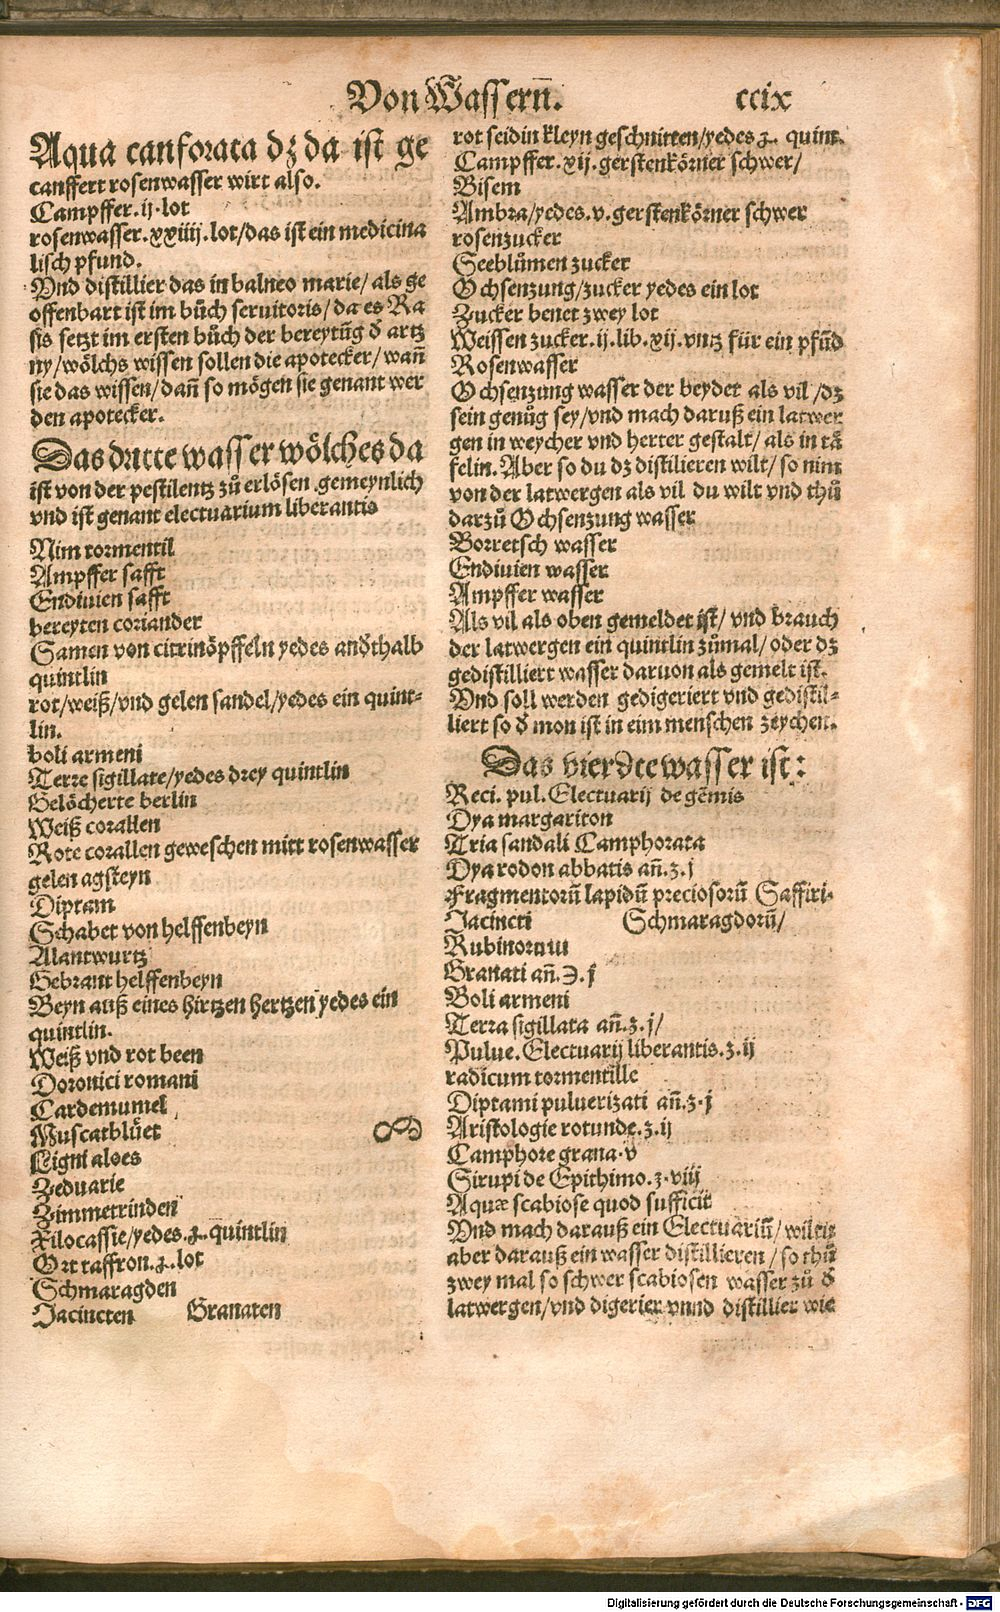 Von Wassern̄. ccix
Aqua canforata dz da ist ge
canffert rosenwasser wirt also.
Campffer.ij.lot
rosenwasser.xxiiij.lot/das ist ein medicina
lisch pfund.
Vnd distillier das in balneo marie/als ge
offenbart ist im bůch seruitoris/da es Ra
sis setzt im ersten bůch der bereytūg d̄ artz
ny/wölchs wissen sollen die apotecker/wañ
sie das wissen/dañ so mögen sie genant wer
den apotecker.
Das dritte wasser wölches da
ist von der pestilentz zů erlösen gemeynlich
vnd ist genant electuarium liberantis
Nim tormentil
Ampffer safft
Endiuien safft
bereyten coriander
Samen von citrinöpffeln yedes and̄thalb
quintlin
rot/weiß/vnd gelen sandel/yedes ein quint-
lin.
boli armeni
Terre sigillate/yedes drey quintlin
Gelöcherte berlin
Weiß corallen
Rote corallen geweschen mitt rosenwasser
gelen agsteyn
Diptam
Schabet von helffenbeyn
Alantwurtz
Gebrant helffenbeyn
Beyn auß eines hirtzen hertzen yedes ein
quintlin.
Weiß vnd rot been
Doronici romani
Cardemumel
Muscatblůet
Ligni aloes
Zeduarie
Zimmetrinden
Xilocassie/yedes.ʒ.quintlin
Ort saffron.ʒ.lot
Schmaragden
Jacincten Granaten
rot seidin kleyn geschnitten/yedes ʒ. quint.
Campffer.xij.gerstenkörner schwer/
Bisem
Ambra/yedes.v.gerstenkörner schwer
rosenzucker
Seeblůmen zucker
Ochsenzung/zucker yedes ein lot
Zucker benet zwey lot
Weissen zucker.ij.lib.xij.vntz für ein pfūd
Rosenwasser
Ochsenzung wasser der beyder als vil/dz
sein genůg sey/vnd mach daruß ein latwer
gen in weycher vnd herter gestalt/als in tā
felin. Aber so du dz distilieren wilt/so nim
von der latwergen als vil du wilt vnd thů
darzů Ochsenzung wasser
Borretsch wasser
Endiuien wasser
Ampffer wasser
Als vil als oben gemeldet ist/vnd brauch
der latwergen ein quintlin zůmal/oder dz
gedistilliert wasser daruon als gemelt ist.
Vnd soll werden gedigeriert vnd gedistil-
liert so d̄ mon ist in eim menschen zeychen.
Das vierdte wasser ist:
Reci. pul. Electuarij de gēmis
Dya margariton
Tria sandali Camphorata
Dya rodon abbatis añ.ʒ.j
Fragmentorū lapidū preciosorū Saffiri-
Jacincti Schmaragdorū/
Rubinorum
Granati añ.℈.j
Boli armeni
Terra sigillata añ.ʒ.j/
Pulue. Electuarij liberantis.ʒ.ij
radicum tormentille
Diptami puluerizati añ.ʒ.j
Aristologie rotunde.ʒ.ij
Camphore grana.v
Sirupi de Epithimo.ʒ.viij
Aquæ scabiose quod sufficit
Vnd mach darauß ein Electuariū/wiltu
aber darauß ein wasser distillieren/so thů
zwey mal so schwer scabiosen wasser zů d̄
latwergen/vnd digerier vnnd distillier wie
Digitalisierung gefördert durch die Deutsche Forschungsgemeinschaft - DFG